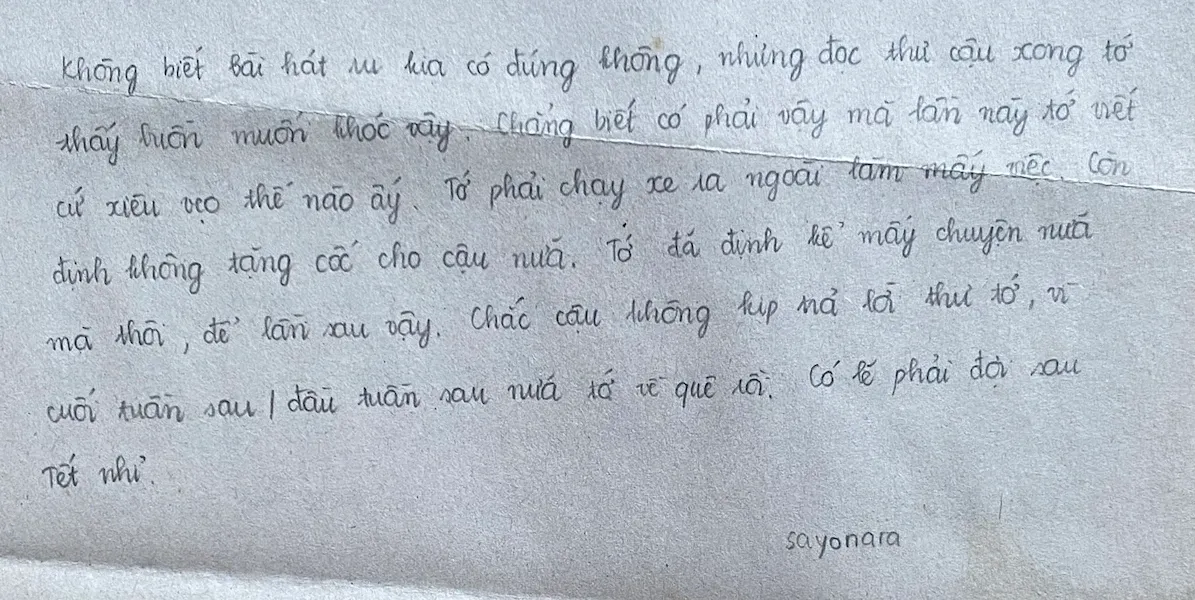 Không biết Bài hát ru kia có đúng không, nhưng đọc thư cậu xong tớ
thấy buồn muốn khóc vậy. Chẳng biết có phải vậy mà lần này tớ viết
cứ xiêu vẹo thế nào ấy. Tớ phải chạy xe ra ngoài làm mấy việc. Còn
định không tặng cốc cho cậu nữa. Tớ đã định kể mấy chuyện nữa
mà thôi, để lần sau vậy. Chắc cậu không kịp trả lời thư tớ, vì
cuối tuần sau / đầu tuần sau nữa tớ về quê rồi. Có lẽ phải đợi sau
Tết nhỉ.
sayonara